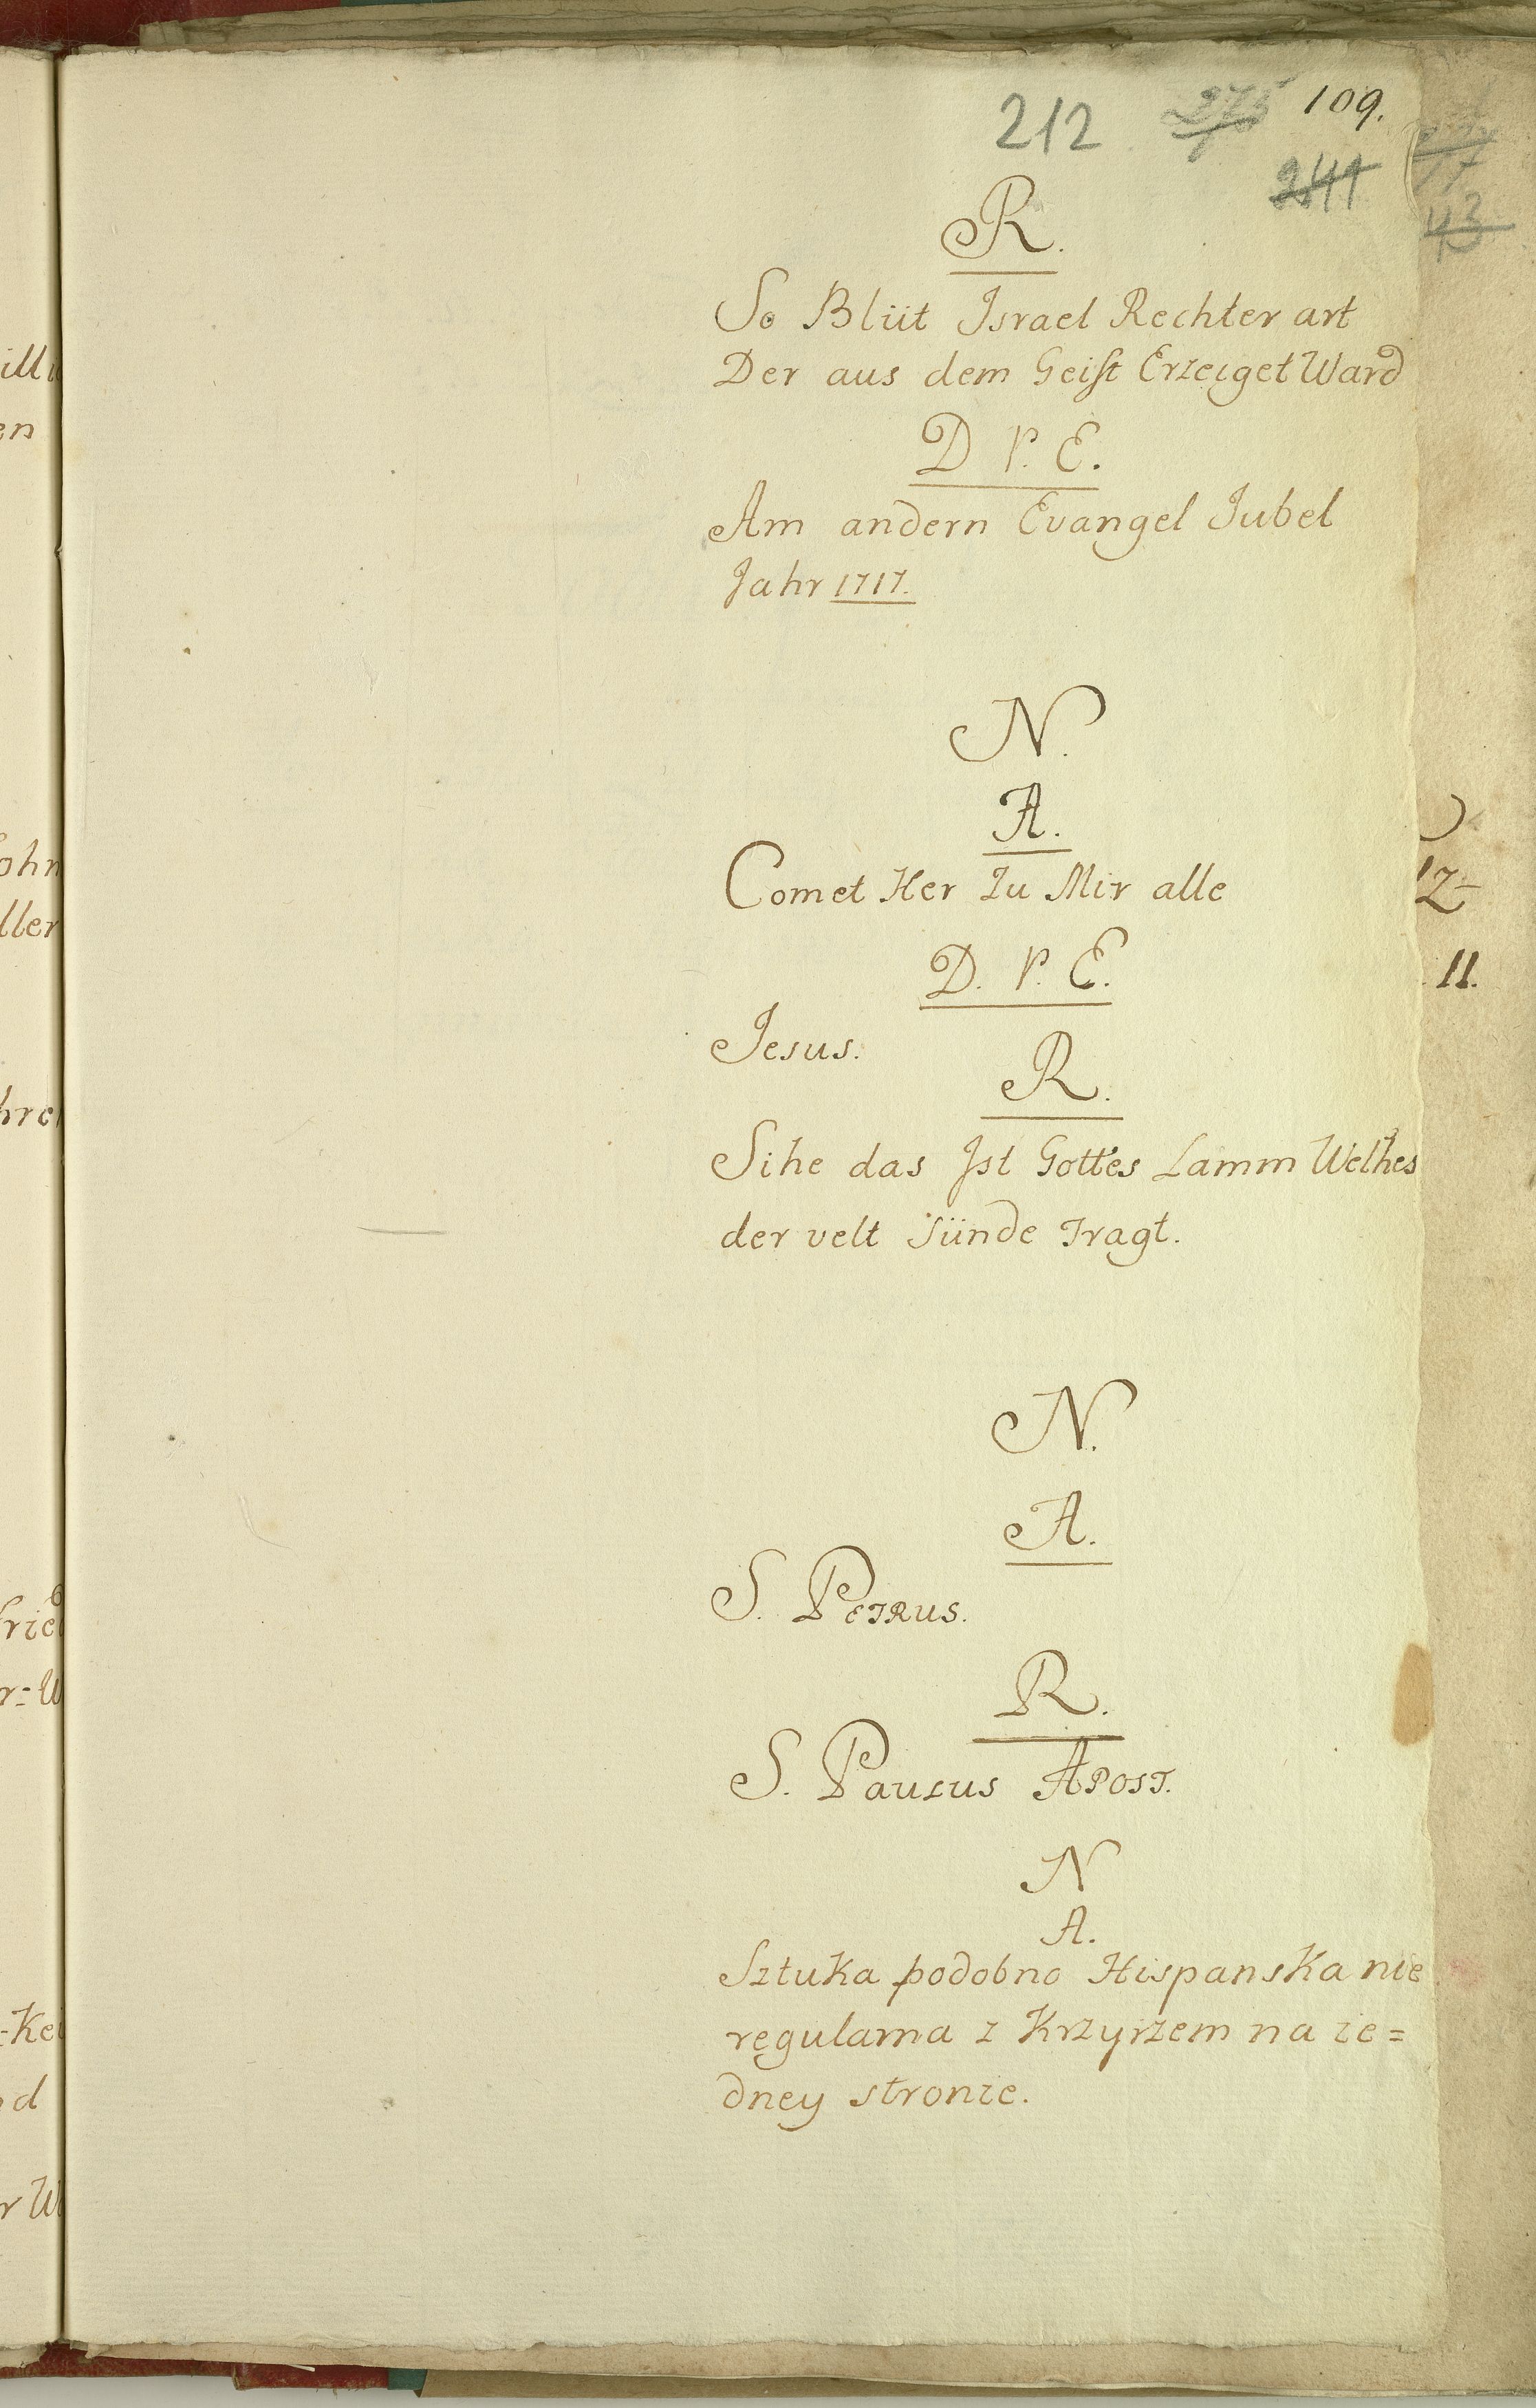 212 275 109.
241
R.
So Blüt Israel Rechter art
Der aus dem Geist Erzeiget Ward
D V. E.
Am andern Evangel Jubel
Jahr 1717.
N.
A.
Comet Her Zu Mir alle
D. V. E.
Jesus.
R.
Sihe das Ist Gottes Lamm Welhes
der velt Sünde Tragt.
N.
A.
S. PETRUS.
R.
S. PAULUS APOST.
N
A.
Sztuka podobno Hispanska nie
regularna z Krzyrzem na ie=
dney stronie.